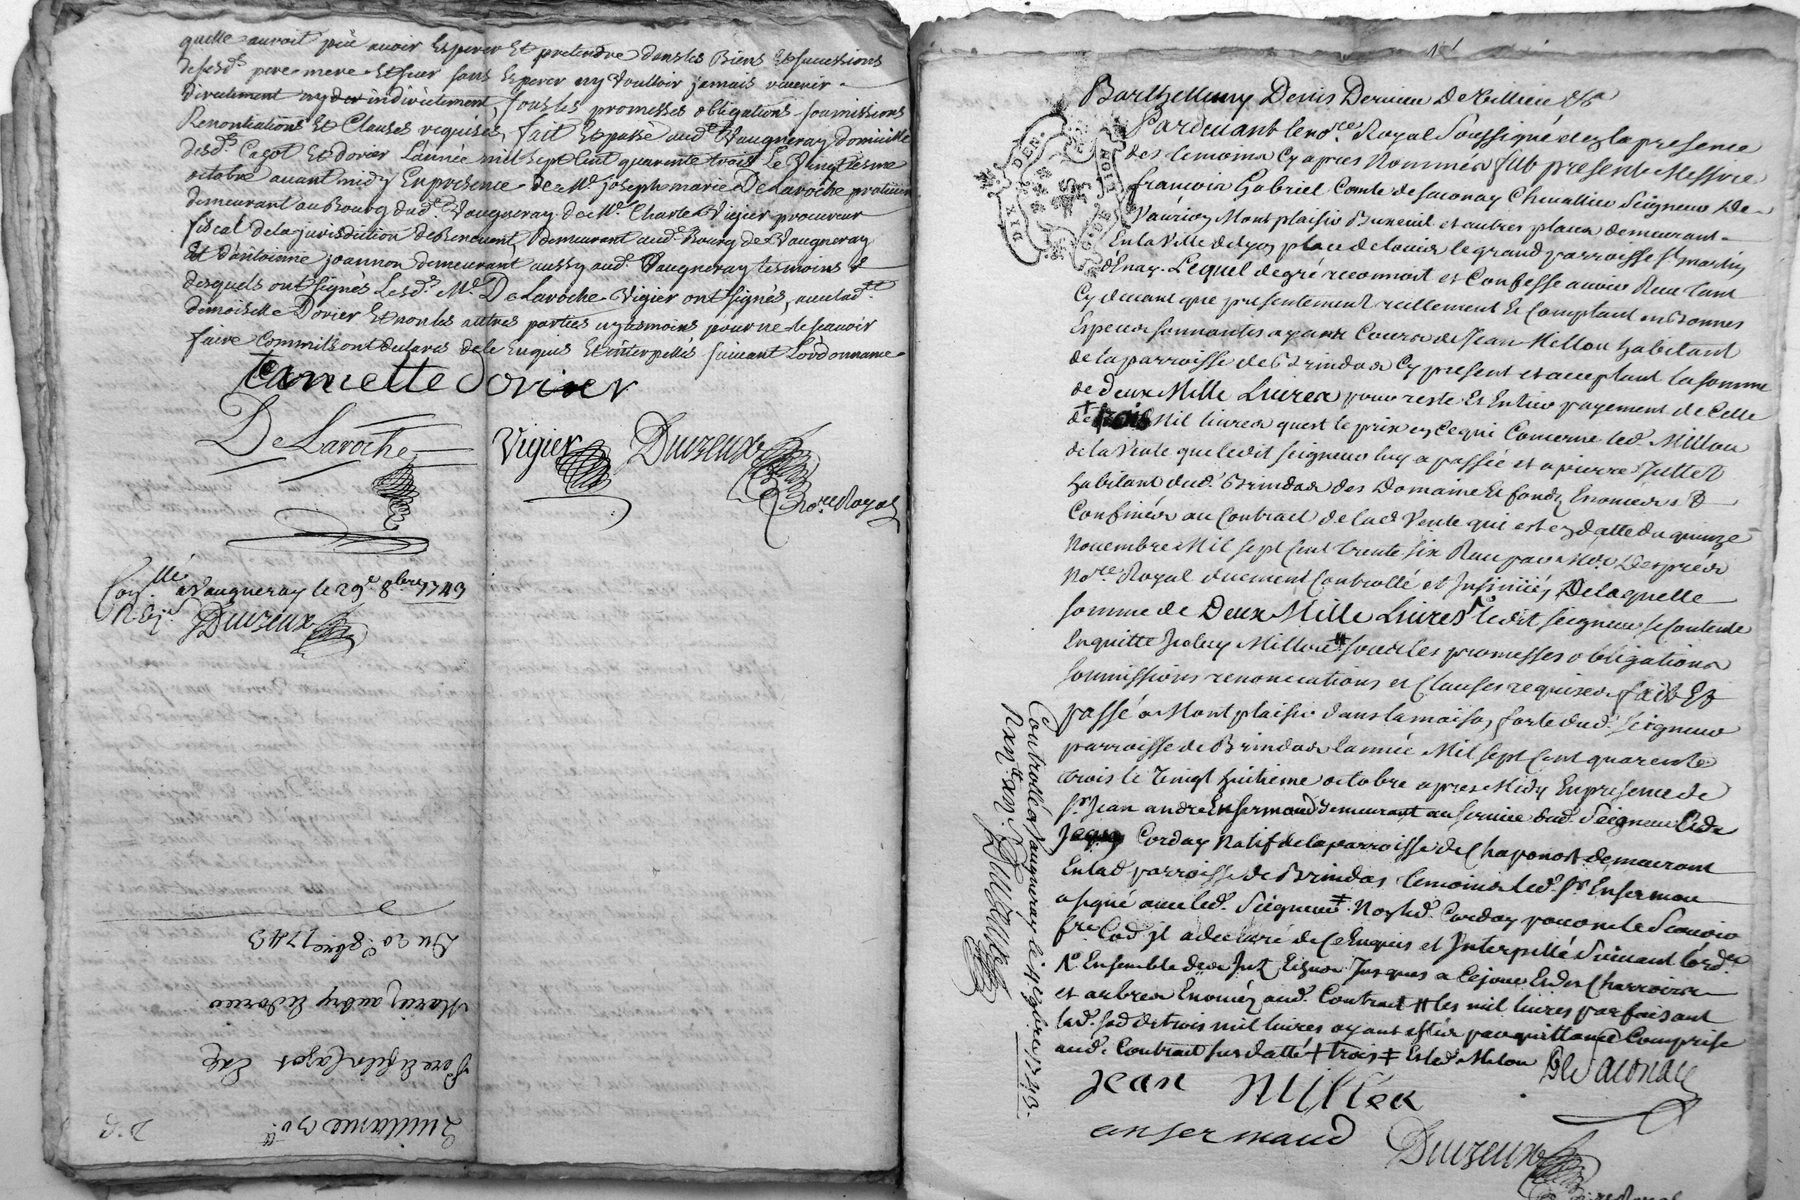 quelle auroit peu avoir Esperer Et pretendre dans les Biens Et successions
desesd. pere mere Et sans Esperer ny Voulloir jamais revenir
directement ny indirectement, sous les promesses obligations soumissions
Renontiations Et Clauses requises, fait Et passé aud. Vaugneray domicille
desd. Cazot Et dorier L'année mil sept cent quarente trois Le Vingtiesme
octobre avant midy En presence de Me. Joseph marie De Laroche
demeurant au Bourg dud. Vaugneray de Me. Charle Vigier procureur
fiscal de la jurisdiction de demeurant aud. Bourg de Vaugneray
Et d'antoinne joannon demeurant aussy aud. Vaugneray tesmoins
desquels ont signés Lesd. Me. De Laroche Vigier ont signés, avec lad.
demoiselle Dorier Et non les autres parties ny tesmoins pour ne le scavoir
faire comm'ils ont declarés de ce Enquis Et interpellés suivant L'ordonnance
dorier
De Laroche Vigier Duizeux
no.re Royal
Con.llé a Vaugneray le 29e. 8bre 1743
Duizeux
Du 20e. 8bre 1743
Quittance 30
Barthellemy Denis Dervieu De Villieu
Pardevant le no.re Royal soussigné et en la presence
des temoins Cy apres Nommés fut present Messire
françois Gabriel Comte de saconay Chevallier Seigneur De
Montplaisir Bureuil et autres places demeurant
En la Ville de lyon place de Louis le grand parroisse st. martin
d'Enay. Lequel de gré reconnoit et Confesse avoir Receu tant
Cy devant que presentement reellement Et Comptant en Bonnes
Especes sonnantes ayant Cours de Jean Millou habitant
de la parroisse de Brindas Cy present et acceptant la somme
de Deux Mille Livres pour reste Et Entier payement de Celle
de trois Mil livres qu'est le prix en Ce qui Concerne led. Millou
de la Vente que ledit seigneur luy a passée et a pierre Jullet
habitant dud. Brindas des Domaine Et fonds Enoncés &
Confinés au Contract de lad Vente qui est en datte du quinze
Novembre Mil sept Cent trente six Receu par Me. Desprès
No.re Royal duement Controllé et Insinué, De laquelle
somme de Deux Mille Livres ledit seigneur se Contente
En quitte Iceluy Millou # sous les promesses obligations
soumissions renonciations et Clauses requises fait Et
passé a Montplaisir dans la maison forte dud. seigneur
parroisse de Brindas l'année Mil sept Cent quarente
trois le Vingt huitieme octobre apres Midy En presence de
sr. Jean andre Ensermaud demeurant au service dud. Seigneur Et de
Corday Natif de la parroisse de Chaponost demeurant
En lad parroisse de Brindas temoins led. sr. Ensermau
a signé avec led. Seigneur ‡ Non led. Corday pour ne le scavoir
f.re Il a declaré de Ce Enquis et Interpellé Suivant l'ord.ce
Ensemble des Int. Jusques a Ce jour Et des Charroirs
et arbres Enoncés aud. Contract # les mil livres parfaisant
lad. se de trois mil livres ayant estés par quittance Comprise
aud. Contract sus datté + trois ‡ Et led. Milou De Saconay
Jean Millou
ensermaud
Duizeux
Controllé a Vaugneray le 9bre 1743.
Duizeux